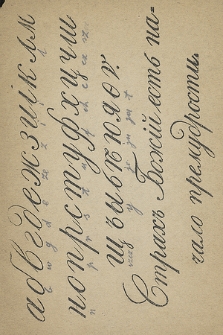 абвгдежзиіклм
нопрстуфхцчш
щъыьѣэюяѳѵ.
Страхъ Божій есть на-
чало премудрости.